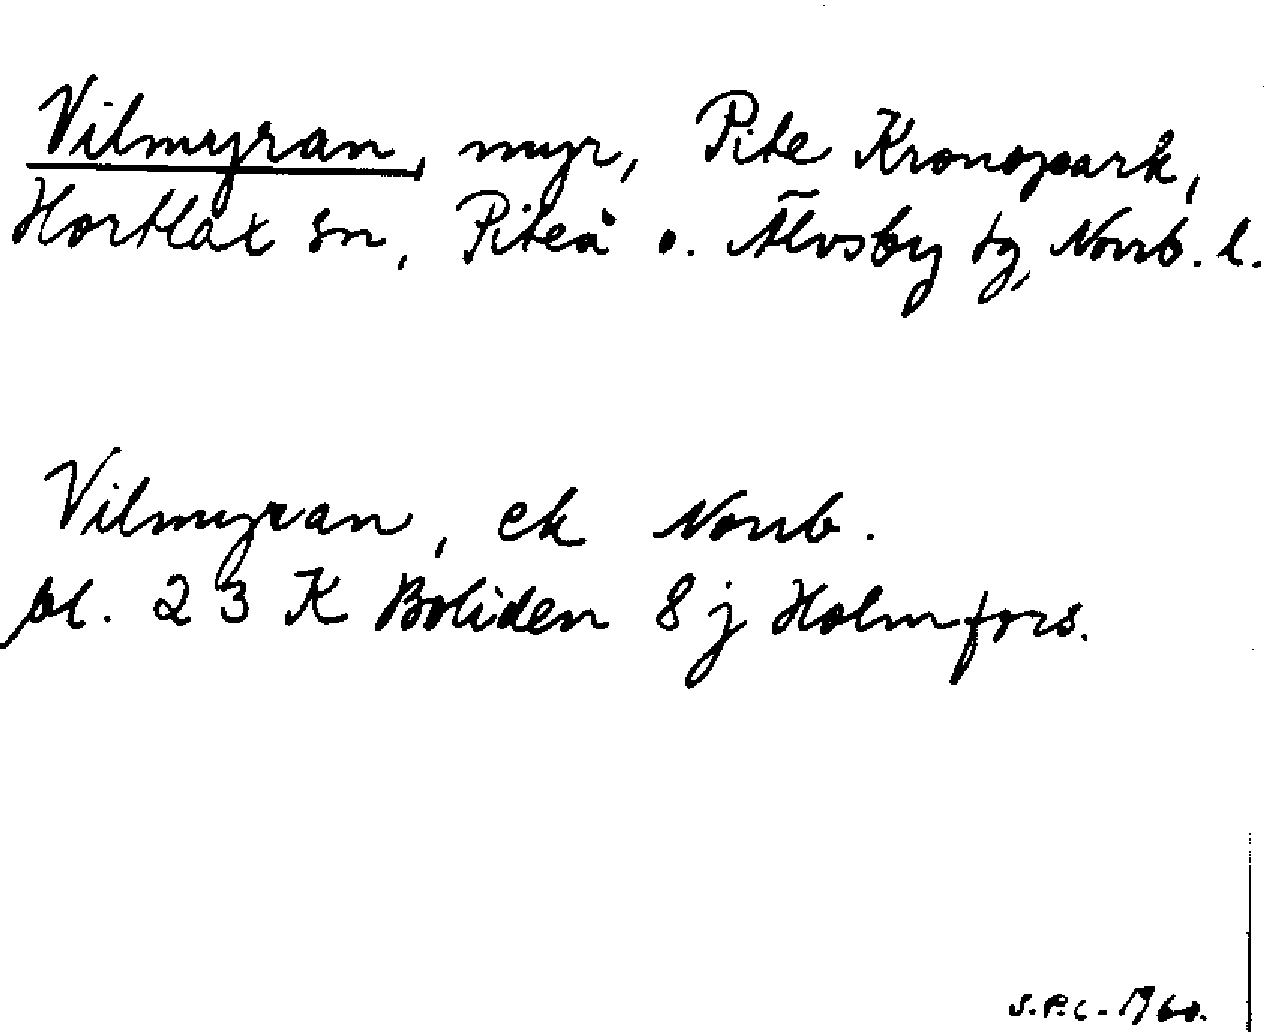 Vilmyran, myr, Pite Kronopark,
Hortlax sn, Piteå o. Älvsby tg, Norrb. l.
Vilmyran, ek Norrb.
bl. 23 K Boliden 8 j Holmfors.
1960.